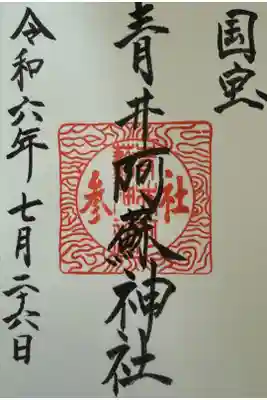 国宝
青井阿蘇神社
参社
令和六年七月二十六日